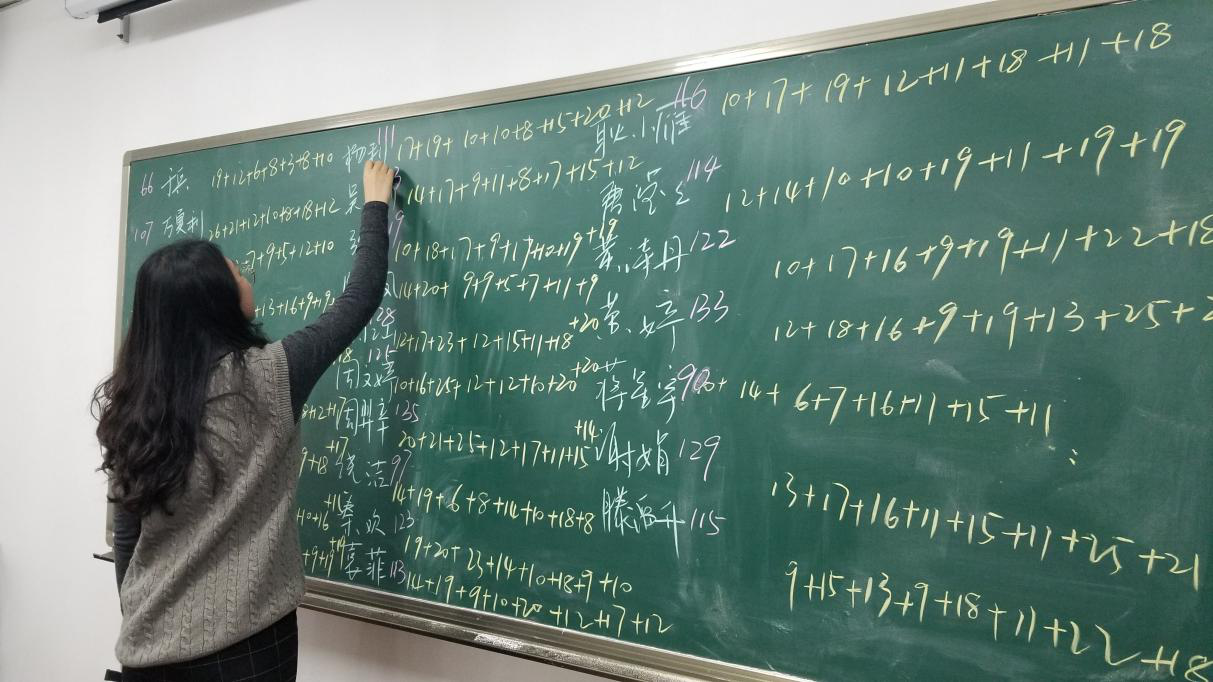 66 19+12+6+8+3+8+10
107 万夏利 26+21+12+10+8+18+12
7+9+5+12+10
+13+16+9+19
8+2+17
+17
9+18
+15
10+16
+9+19
杨利 111 17+19+10+10+8+15+20+12
吴 14+17+9+11+8+17+15+12
10+18+17+9+17+10+19+19
凤 14+20+9+9+5+7+11+9
128 12+17+23+12+15+11+18+20
周文婷 125 10+16+25+12+12+10+20+20
周群辛 135 20+21+25+12+17+11+15+14
饶洁 97 14+19+6+8+14+10+18+8
秦欢 123 19+20+23+14+10+18+9+10
菲 113 14+19+9+10+20+12+17+12
耿小雁 116 10+17+19+12+11+18+11+18
114 12+14+10+10+19+11+19+19
黄泽丹 122 10+17+16+9+19+11+22+18
黄婷 133 12+18+16+9+19+13+25+2
蒋宇 90 14+6+7+16+11+15+11
谢娟 129 13+17+16+11+15+11+25+21
滕升 115 9+15+13+9+18+11+22+18